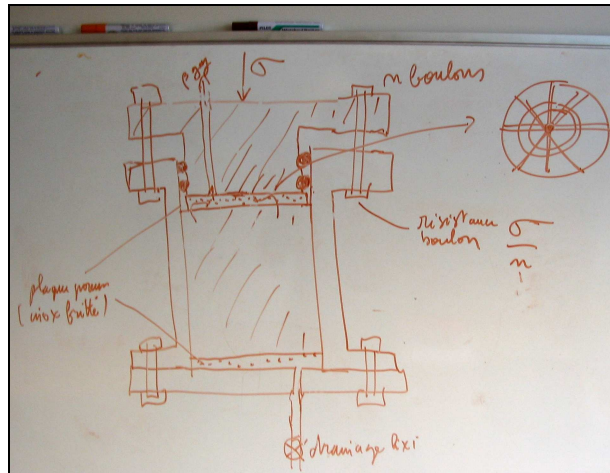 gaz
σ
n boulons
résistance
boulon
σ
n
plaque poreuse
(inox fritté)
drainage lixi